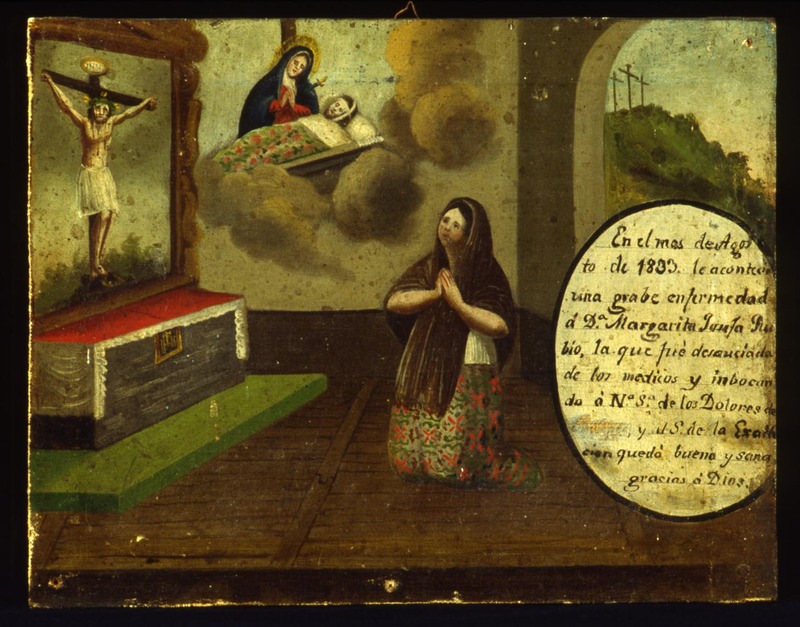 En el mes de Agos
to de 1833. le acontec
una grabe enfermedad
á D.ª Margarita Josefa Ru
bio, la que fué desauciada
de los medicos y inbocan
do á N.ª S.ª de los Dolores de
y al S.r de la Exalta
cion quedó buena y sana
gracias á Dios.